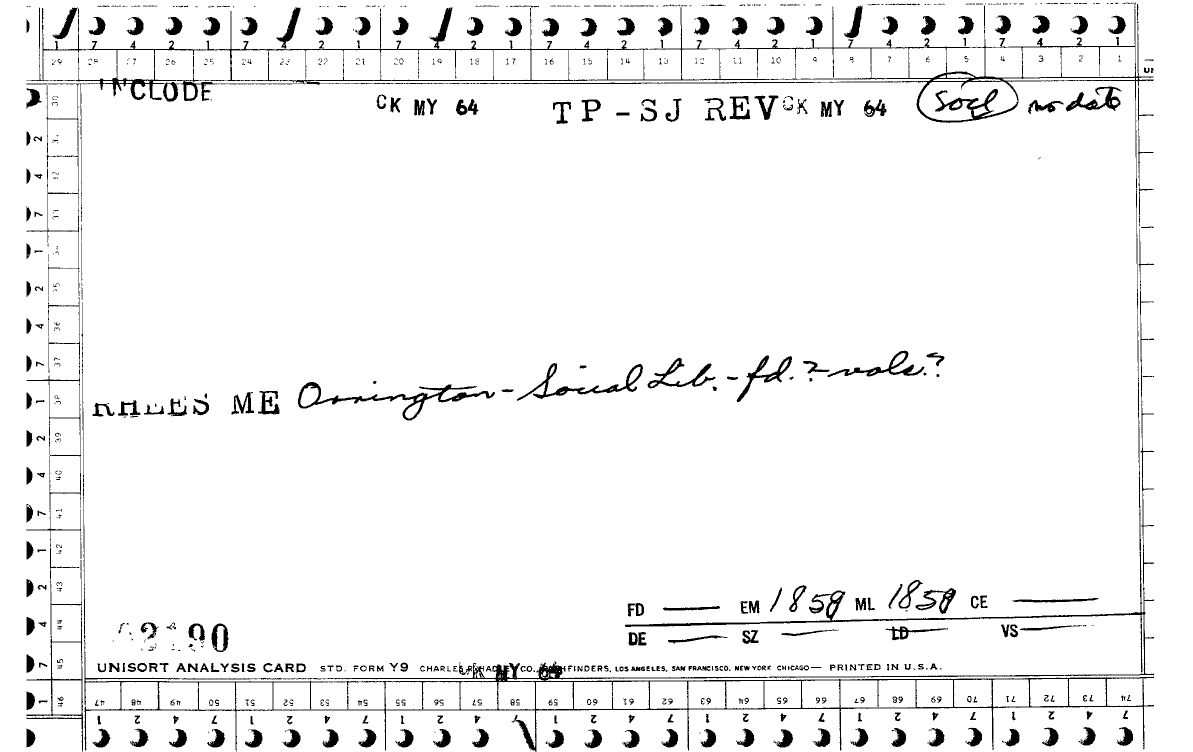 7 4 2 1 7 4 2 1 7 4 2 1 7 4 2 1 7 4 2 1 7 4 2 1 7 4 2 1
29 28 27 26 25 24 23 22 21 20 19 18 17 16 15 14 13 12 11 10 9 8 7 6 5 4 3 2 1
INCLODE CK MY 64 TP-SJ REV CK MY 64 Socl no date
RHEES ME Orrington - Social Lib. - fd. ? vols.?
FD — EM 1859 ML 1859 CE —
DE — SZ — LD VS —
UNISORT ANALYSIS CARD STD. FORM Y9 CHARLES R. HADLEY CO., PATHFINDERS, LOS ANGELES, SAN FRANCISCO, NEW YORK CHICAGO— PRINTED IN U.S.A.
CK MY 64
47 48 49 50 51 52 53 54 55 56 57 58 59 60 61 62 63 64 65 66 67 68 69 70 71 72 73 74
1 2 4 7 1 2 4 7 1 2 4 7 1 2 4 7 1 2 4 7 1 2 4 7 1 2 4 7